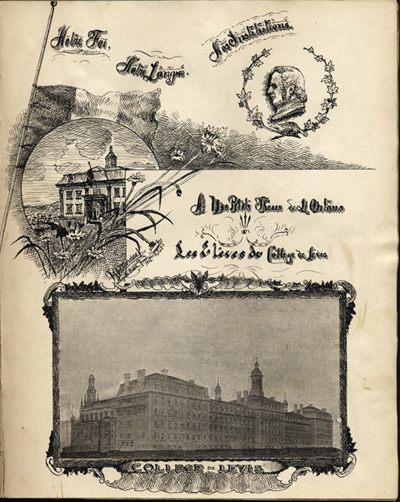 Notre Foi.
Notre Langue.
Nos Institutions.
A Nos Petits de L Ontario
Les Elèves du Collège de Lévis
COLLEGE DE LEVIS